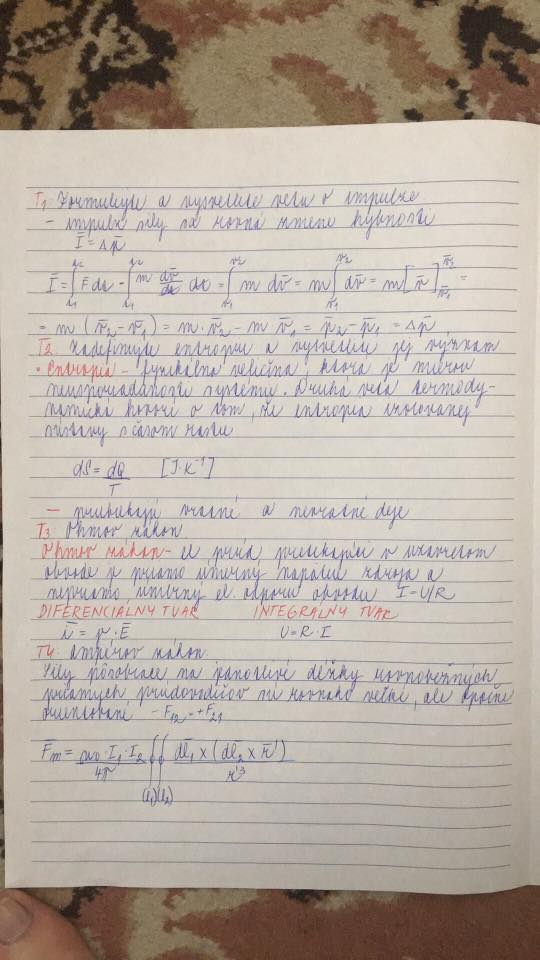 T1 Formulujte a vysvetlite vetu o impulze
- impulz sily sa rovná zmene hybnosti
I̅ = Δp̅
I̅ = ∫ F̅ dt = ∫ m dv̅/dt dt = ∫ m dv̅ = m ∫ dv̅ = m [v̅] =
= m (v̅2 - v̅1) = m · v̅2 - m v̅1 = p̅2 - p̅1 = Δp̅
T2. Zadefinujte entropiu a vysvetlite jej význam
• Entropia - fyzikálna veličina, ktorá je mierou
neusporiadanosti systému. Druhá veta termody-
namická hovorí o tom, že entropia izolovanej
sústavy s časom rastie
dS = dQ/T [J·K⁻¹]
- prebiehajú vratné a nevratné deje
T3 Ohmov zákon
Ohmov zákon - el prúd pretekajúci v uzavretom
obvode je priamo úmerný napätiu zdroja a
nepriamo úmerný el. odporu obvodu I = U/R
DIFERENCIALNY TVAR INTEGRÁLNY TVAR
i̅ = γ · E̅ U = R · I
T4 Ampérov zákon
Sily pôsobiace na jednotlivé dĺžky rovnobežných
priamych prúdovodičov sú rovnako veľké, ale opačne
orientované - F12 = + F21
F̅m = μ0 · I1 · I2 / 4π ∮ ∮ dl̅1 × (dl̅2 × r̅') / r'³
(l1) (l2)